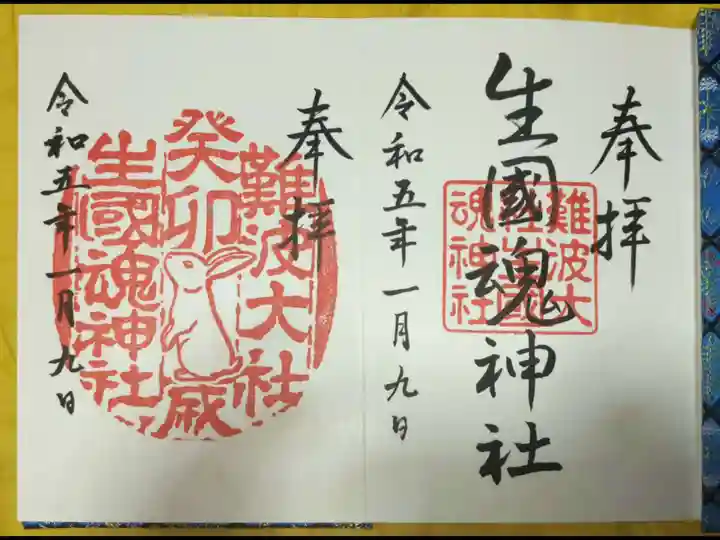 奉拝
生國魂神社
難波大社生國魂神社
令和五年一月九日
奉拝
難波大社
癸卯歳
生國魂神社
令和五年一月九日